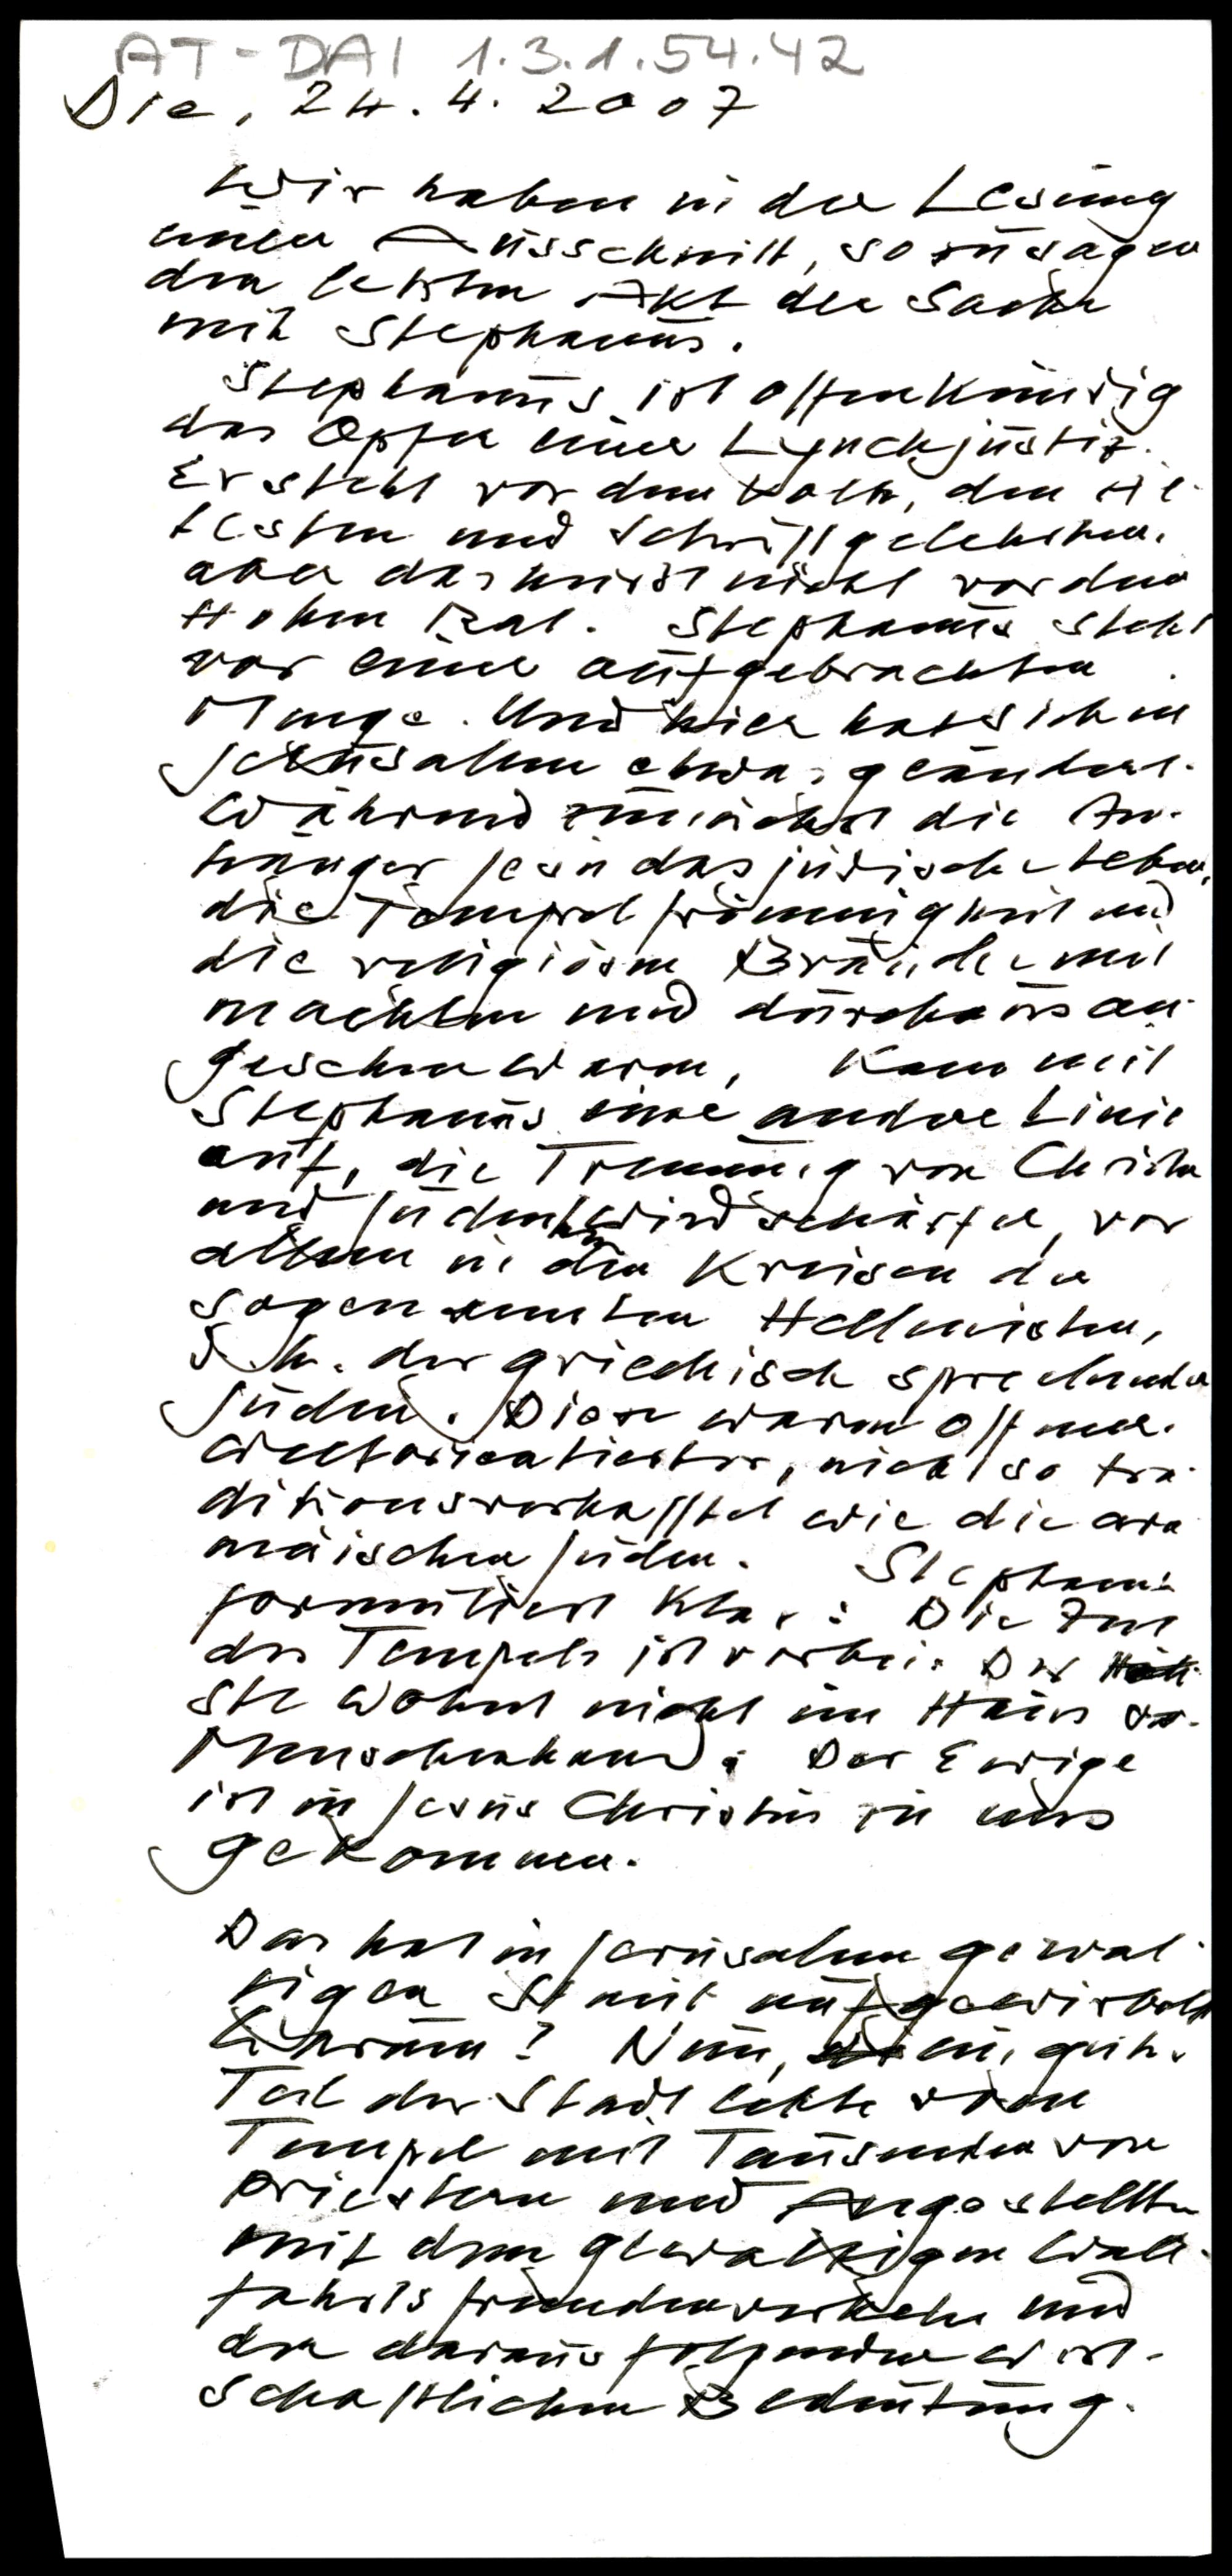 AT-DAI 1.3.1.54.42
Die, 24.4.2007
Wir haben in der Lesung
einen Ausschnitt, sozusagen
den letzten Akt der Sache
mit Stephanus.
Stephanus ist offenkundig
das Opfer einer Lynchjustiz.
Er steht vor dem Volk, den Äl-
testen und Schriftgelehrten,
aber das heisst nicht vor dem
Hohen Rat. Stephanus steht
vor einer aufgebrachten
Menge. Und hier hat sich in
Jerusalem etwas geändert.
Während zunächst die An-
hänger Jesu das jüdische Leben,
die Tempelfrömmigkeit und
die religiösen Bräuche mit
machten und durchaus an-
gesehen waren, kam mit
Stephanus eine andere Linie
auf, die Trennung von Christen
und Juden wird schärfer, vor
allem in den Kreisen der
sogenannten Hellenisten,
d.h. der griechisch sprechenden
Juden. Diese waren offener,
weltorientierter, nicht so tra-
ditionsverhaftet wie die ara
mäischen Juden. Stephanus
formuliert klar: Die Zeit
des Tempels ist vorbei. Der Höch-
ste wohnt nicht im Haus von
Menschenhand. Der Ewige
ist in Jesus Christus zu uns
gekommen.
Das hat in Jerusalem gewal-
tigen Staub aufgewirbelt
Warum? Nun, ein guter
Teil der Stadt lebte vom
Tempel mit Tausenden von
Priestern und Angestellten
mit dem gewaltigen Wall-
fahrtsfremdenverkehr und
der daraus folgenden wirt-
schaftlichen Bedeutung.